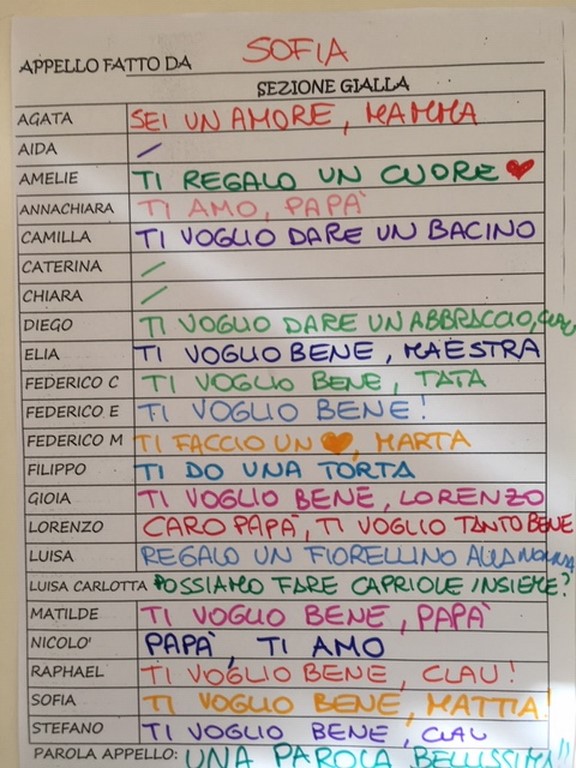 APPELLO FATTO DA SOFIA
SEZIONE GIALLA
AGATA SEI UN AMORE, MAMMA
AIDA /
AMELIE TI REGALO UN CUORE ♥
ANNACHIARA TI AMO, PAPÀ
CAMILLA TI VOGLIO DARE UN BACINO
CATERINA /
CHIARA /
DIEGO TI VOGLIO DARE UN ABBRACCIO,
ELIA TI VOGLIO BENE, MAESTRA
FEDERICO C TI VOGLIO BENE, TATA
FEDERICO E TI VOGLIO BENE!
FEDERICO M TI FACCIO UN ♥, MARTA
FILIPPO TI DO UNA TORTA
GIOIA TI VOGLIO BENE, LORENZO
LORENZO CARO PAPÀ, TI VOGLIO TANTO BENE
LUISA REGALO UN FIORELLINO ALLA NONNA
LUISA CARLOTTA POSSIAMO FARE CAPRIOLE INSIEME?
MATILDE TI VOGLIO BENE, PAPÀ
NICOLO' PAPÀ, TI AMO
RAPHAEL TI VOGLIO BENE, CLAU!
SOFIA TI VOGLIO BENE, MATTIA!
STEFANO TI VOGLIO BENE, CLAU
PAROLA APPELLO: UNA PAROLA BELLISSIMA!!